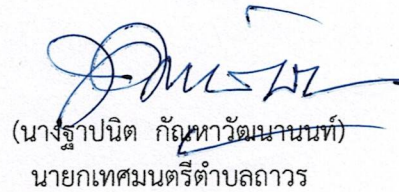 (นางฐาปนิต กัณหาวัฒนานนท์)
นายกเทศมนตรีตำบลถาวร